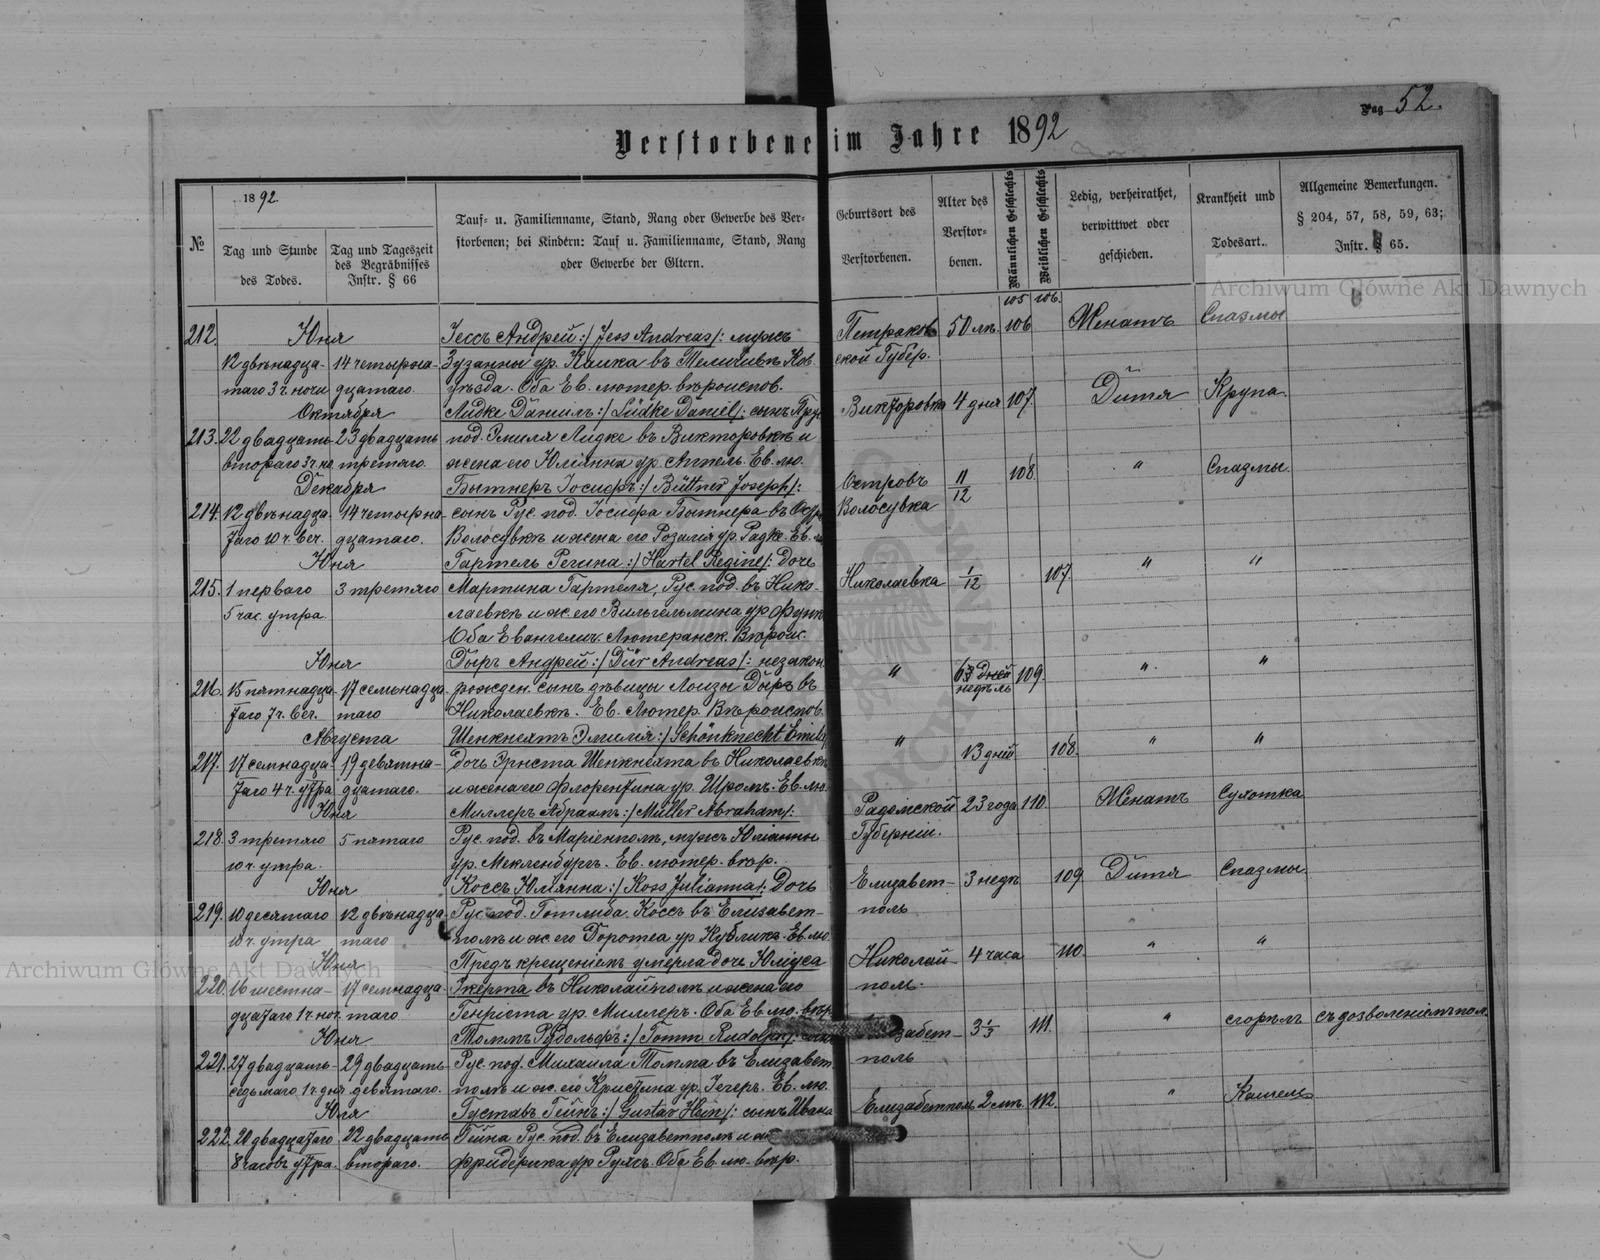 Pag 52.
Verstorbene im Jahre 1892
№
1892.
Tag und Stunde
des Todes.
Tag und Tageszeit
des Begräbnisses
Instr. § 66
Tauf- u. Familienname, Stand, Rang oder Gewerbe des Ver-
storbenen; bei Kindern: Tauf u. Familienname, Stand, Rang
oder Gewerbe der Eltern.
Geburtsort des
Verstorbenen.
Alter des
Verstor-
benen.
Männlichen Geschlechts
Weiblichen Geschlechts
Ledig, verheirathet,
verwittwet oder
geschieden.
Krankheit und
Todesart.
Allgemeine Bemerkungen.
§ 204, 57, 58, 59, 63;
Instr. § 65.
105 106.
212. Юня Іессъ Андрей :/ Jess Andreas /: мужъ Петроков 50 лѣ. 106 Женатъ Спазмы
12 двѣнадца- 14 четырна- Зузанны ур. Каика въ ской Губер.
таго 3 ч. ночи дцатаго. уѣзда. Оба Ев. лютер. вѣроиспов.
Октября Лидке Даніилъ :/ Lüdke Daniel /: сынъ Викторовка 4 дня 107. Дитя Крупа.
213. 22 двадцать- 23 двадцать под. Эмиля Лидке въ Викторовкѣ и
втораго 3 ч. третяго. жена его Юліянна ур. Аппель. Ев. лю.
Декабря Бытнеръ Іосифъ :/ Büttner Joseph /: Островъ 11/12 108. " Спазмы.
214. 12 двѣнадца- 14 четырна- сынъ Рус. под. Іосифа Бытнера въ Волосувка
таго 10 ч. веч. дцатаго. Волосувкѣ и жена его Розалія ур. Радке. Ев.
Юня Гартель Регина :/ Hartel Regine /: дочь Николаевка 1/12 107. " "
215. 1 перваго 3 третяго Мартина Гартеля, Рус. под. въ Нико-
5 час. утра. лаевкѣ и ж. его Вильгельмина ур. Функ
Оба Евангелич. Лютеранск. Вѣроис.
Юня Дыръ Андрей :/ Dür Andreas /: незакон " недѣль 109. " "
216. 15 пятнадца- 17 семьнадца- рожден. сынъ дѣвицы Лоизы Дыръ въ
таго 7 ч. веч. таго Николаевкѣ. Ев. Лютер. Вѣроиспов.
Августа Шенкнехтъ Эмилія :/ Schönknecht Emilie " 13 дній 108. " "
217. 17 семнадца- 19 девятна- дочь Эрнста Шенкнехта въ Николаевкѣ
таго 4 ч. утра дцатаго. и жена его Флорентина ур. Шромъ. Ев. лю.
Юня Миллеръ Абраамъ :/ Müller Abraham /: Радомской 23 года 110. Женатъ Сухотка
218. 3 третяго 5 пятаго Рус. под. въ Маріенполѣ, мужъ Юліанны Губерніи.
10 ч. утра. ур. Мекленбургъ. Ев. лютер. вѣр.
Юня Коссъ Юлianна :/ Koss Julianna /: Дочь Елизавет- 3 недѣ 109. Дитя Спазмы.
219. 10 десятаго 12 двѣнадца- Рус. под. Готлиба Коссъ въ Елизавет- поль
10 ч. утра таго полѣ и ж. его Доротеа ур. Кубликъ. Ев. лю.
Юня Предъ крещеніемъ умерла дочь Юліуса Николай- 4 часа 110. " "
220. 16 шестна- 17 семнадца- Экерта въ Николайполѣ и жена его поль.
дцатаго 1 ч. ноч. таго Генріета ур. Миллеръ. Оба Ев. лю. вѣр.
Юня Томмъ Рудольфъ :/ Tomm Rudolph /: забет- 3 1/3 111. " сгорѣлъ съ дозволеніемъ пол.
221. 27 двадцать- 29 двадцать Рус. под. Михаила Томма въ Елизавет- поль
седьмаго 1 ч. дня девятаго. полѣ и ж. его Кристина ур. Іегеръ. Ев. лю.
Юля Густавъ Гейнъ :/ Gustav Hein /: сынъ Ивана Елизабетполь 2 лѣ. 112. " Кашель
222. 20 двадцатаго 22 двадцать Гейна Рус. под. въ Елизаветполѣ и ж
8 часовъ утра. втораго. Фридерика ур. Оба Ев. лю. вѣр.
Archiwum Główne Akt Dawnych
Archiwum Główne Akt Dawnych